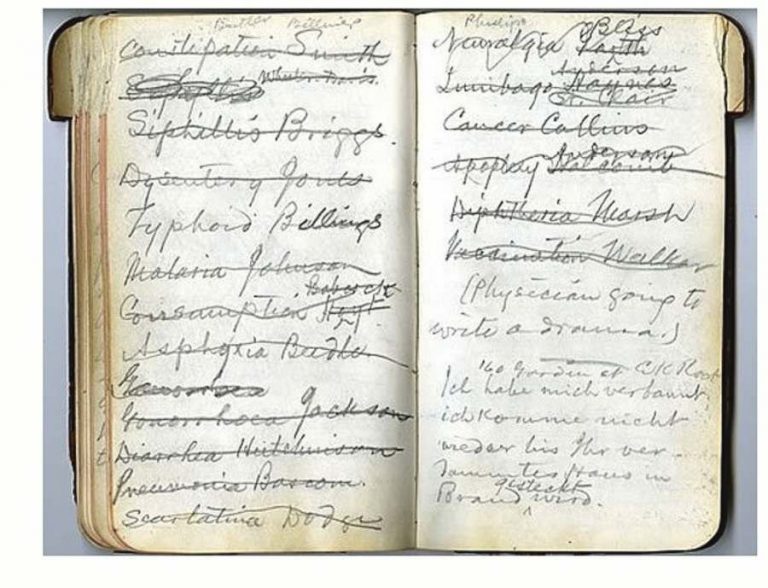 Butler
Constipation Smith
Siphillis Briggs.
Dysentery Jones
Typhoid Billings
Malaria Johnson
Babcock
Consumption
Asphyxia Beedle
Gonorrhoea Jackson
Diarrhea Hutchinson
Pneumonia Bascom.
Scarlatina Dodge
Phillips Bliss
Neuralgia Smith
Anderson
Lumbago Haynes
St. Clair
Cancer Collins
Anderson
Apoplexy
Diphtheria Marsh
Vaccination Walker
(Physician going to
write a drama.)
Ich habe mich verbaunt,
ich komme nicht
wieder bis Ihr ver-
dammtes Haus in
gesteckt
Brand wird.